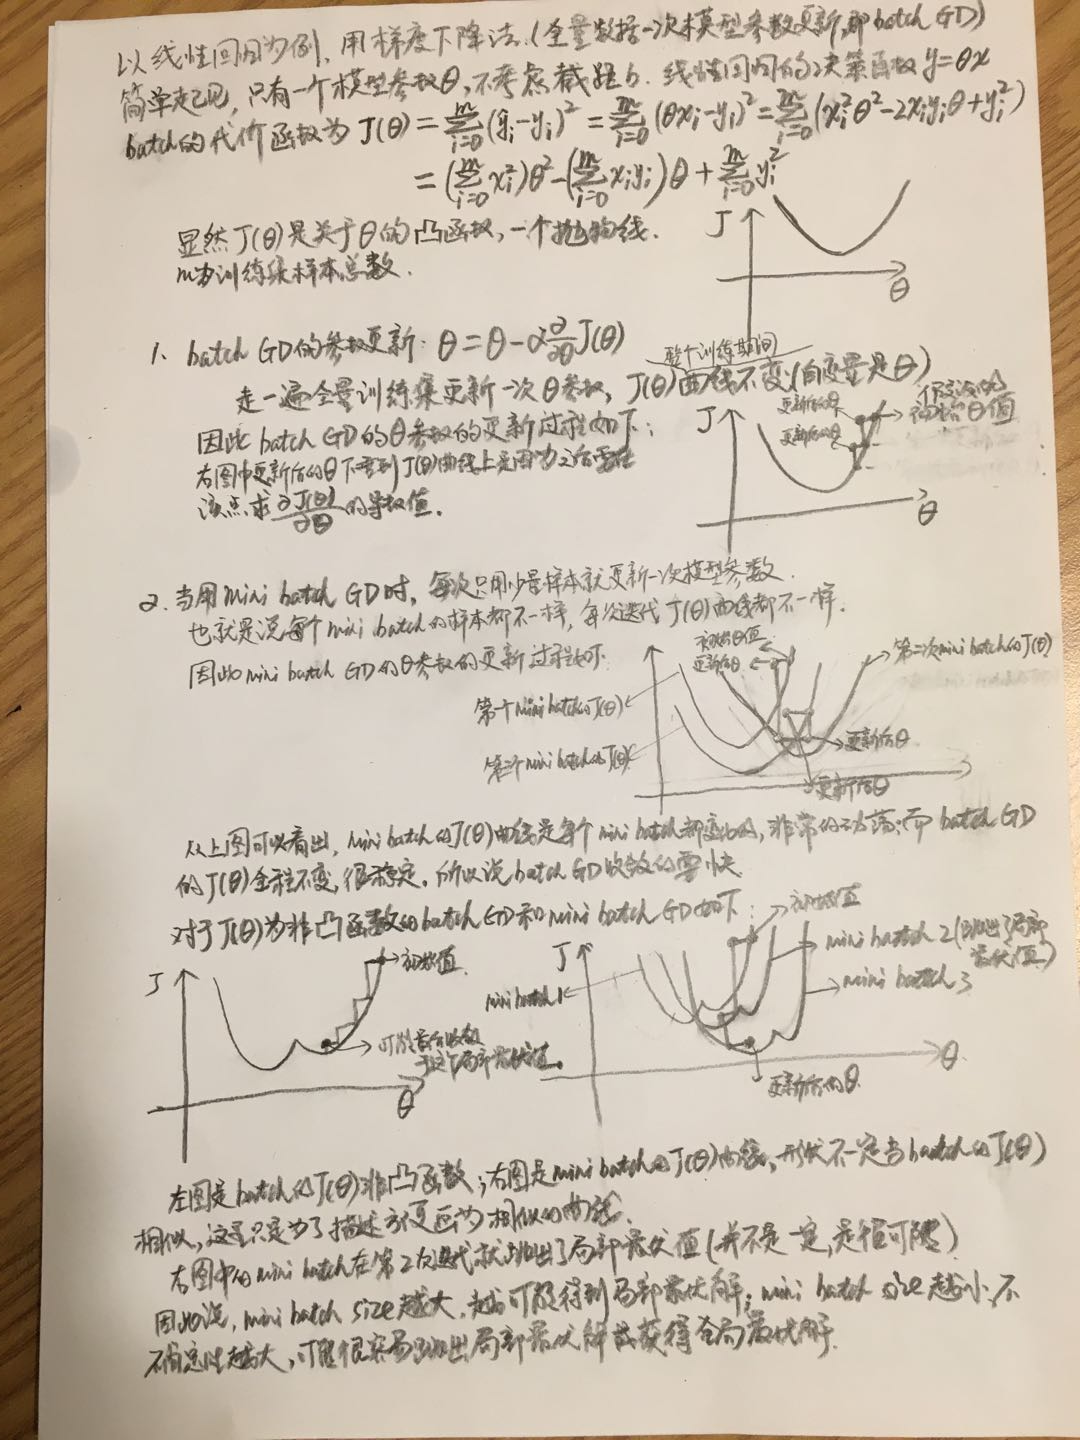 以线性回归为例，用梯度下降法.(全量数据一次模型参数更新,即batch GD)
简单起见，只有一个模型参数θ，不考虑截距b. 线性回归的决策函数 y=θx
batch的代价函数为 J(θ) = Σ_{i=0}^{m} (ŷi-yi)² = Σ_{i=0}^{m} (θxi-yi)² = Σ_{i=0}^{m} (xi²θ²-2xiyiθ+yi²)
= (Σ_{i=0}^{m} xi²)θ² - (Σ_{i=0}^{m} xiyi)θ + Σ_{i=0}^{m} yi²
显然J(θ)是关于θ的凸函数，一个抛物线.
m为训练集样本总数.
J
θ
1、batch GD的参数更新: θ = θ - α ∂/∂θ J(θ)
整个训练期间
走一遍全量训练集更新一次θ参数，J(θ)曲线不变(自变量是θ)
因此batch GD的θ参数的更新过程如下：
右图中更新后的θ下垂到J(θ)曲线上是因为之后要在
该点求 ∂J(θ)/∂θ 的导数值.
J
更新后的θ
更新后的θ
初始θ值
θ
2. 当用mini batch GD时，每次只用少量样本就更新一次模型参数.
也就是说每个mini batch的样本都不一样，每次迭代J(θ)曲线都不一样.
因此mini batch GD的θ参数的更新过程如下.
初始θ值
更新后θ
第二次mini batch的J(θ)
第一个mini batch的J(θ)
第三个mini batch的J(θ)
更新后θ
更新后θ
从上图可以看出，mini batch的J(θ)曲线是每个mini batch都变化的，非常的动荡;而batch GD
的J(θ)全程不变，很稳定，所以说batch GD收敛的要快.
对于J(θ)为非凸函数的batch GD和mini batch GD如下：
J
初始值
可能最后收敛
于这个局部最优值.
θ
J
初始值
mini batch 1
mini batch 2(跳出了局部
最优值)
mini batch 3
θ
更新后的θ
左图是batch的J(θ)非凸函数；右图是mini batch的J(θ)曲线，形状不一定与batch的J(θ)
相似，这里只是为了描述方便画为相似的曲线.
右图中的mini batch在第2次迭代就跳出了局部最优值(并不是一定,是很可能)
因此说，mini batch size越大，越可能得到局部最优解；mini batch size越小,不
不确定性越大，可能很容易跳出局部最优解或获得全局最优解.